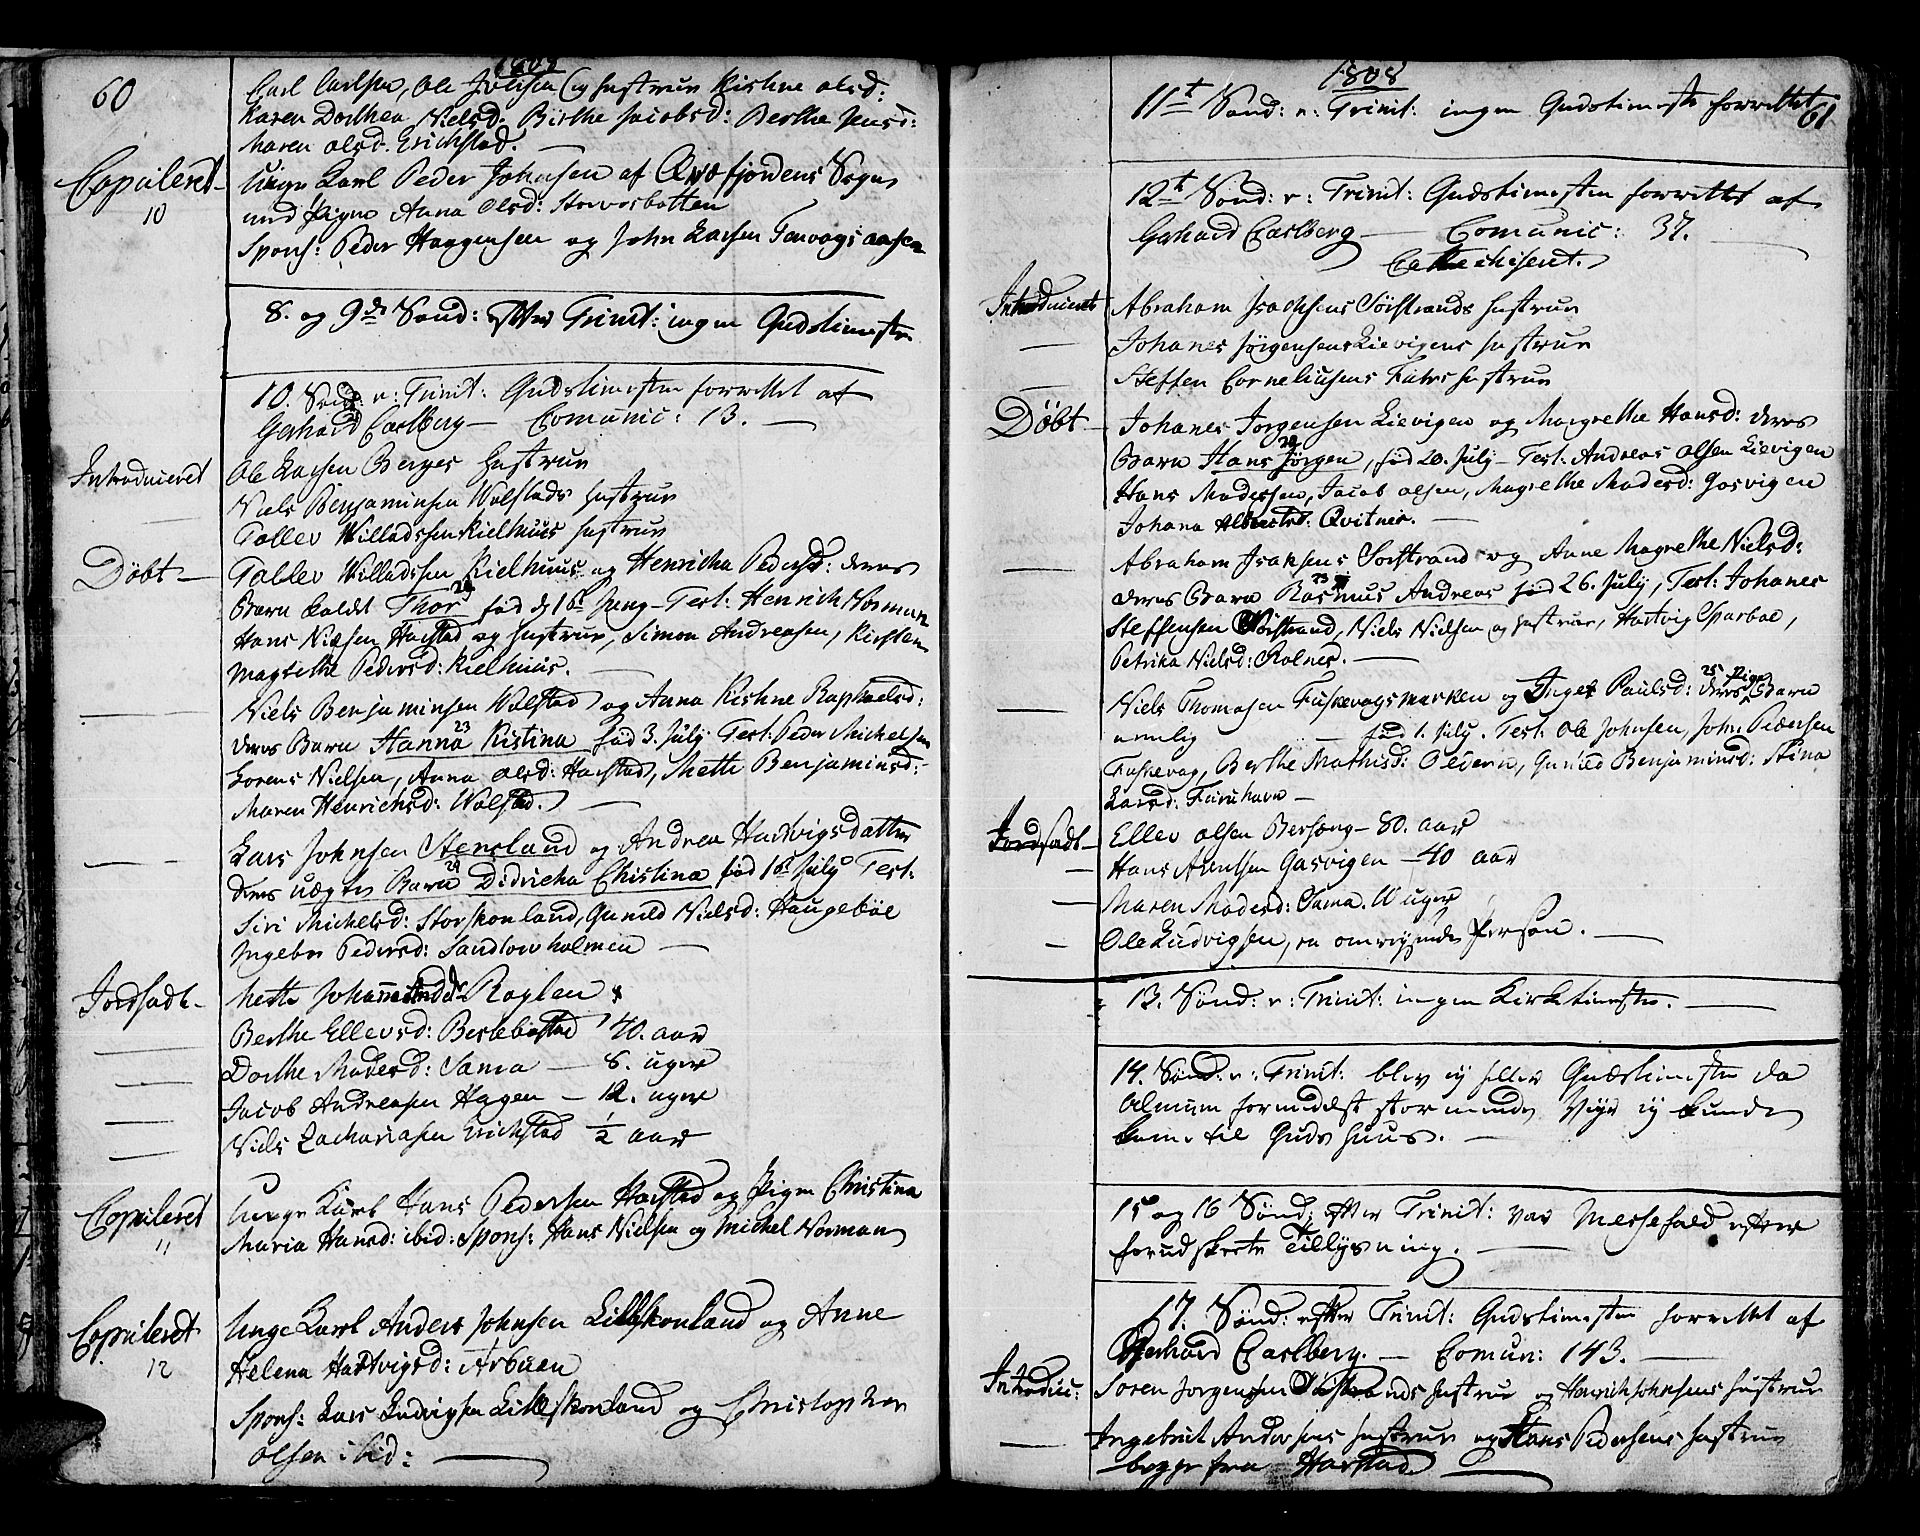 1808
60
Carl Carlsen, Ole Johnsen og Hustrue Kistine Olsd:
Karen Dorthea Nielsd: Birthe Jacobsd: Berthe Jensd:
Maren Olsd. Erichstad.
Copuleret
10
Unge Karl Peder Johnsen af Qvæfjordens Sogn
med Pigen Anna Olsd: Storvasbotten
Spons: Peder Haagensen og John Larsen Tenvogs aasen
8. og 9de Sønd: efter Trinit: ingen Gudstieneste
10. Sønd: e: Trinit: Gudstienesten forrettet af
Gerhard Carlberg — Comunic: 13. —
Introduceret
Ole Larsen Berges Hustrue
Niels Benjaminsen Wolstads Hustrue
Tollev Willadsen Kielhuus Hustrue
Døbt —
Tollev Willadsen Kielhuus og Henricha Pedersd: deres
Barn kaldt Thor fød d 16 Juny — Test: Henrich Norman
Hans Nielsen Harstad og Hustrue, Simon Andreasen, Kirsten
Magrethe Pedersd: Kielhuus. —
Niels Benjaminsen Wolstad og Anna Kistine Raphaelsd:
23
deres Barn Hanna Kistina fød 3. July Test: Peder Michelsen
Lorens Nielsen, Anna Olsd: Harstad, Mette Benjaminsd:
Maren Henrichsd: Wolstad. —
Lars Johnsen Stensland og Andrea Hartvigsdatter
deres uægte Barn Didricha Christina fød 16 July Test:
Siri Michelsd: Storskonland, Guneld Nielsd: Haugebøe
Ingebor Pedersd: Sandtorvholmen —
Jordfæst —
Mette Johannesd: Roglen
Berthe Ellevsd: Berlebostad 40. aar
Dorthe Madesd: Sama — 8. uger
Jacob Andreasen Hagen — 12. uger
Niels Zachariasen Erichstad ½ aar
Copuleret
11
Unge Karl Hans Pedersen Harstad og Pigen Christina
Maria Hansd: ibid: Spons: Hans Nielsen og Michel Norman
Copuleret
12
Unge Karl Anders Johnsen Lilleskonland og Anne
Helena Hartvigsd: Arbuen
Spons: Lars Ludvigsen Lilleskonland og Christopher
Olsen ibid: —
1808
61
11te Sønd: e: Trinit: ingen Gudstieneste forrettet
12te Sønd: e: Trinit: Gudstienesten forrettet af
Gerhard Carlberg — Comunic: 37. —
Catechiseret.
Introduceret
Abraham Isachsens Sørstrands Hustrue
Johanes Jørgensens Kievigens Hustrue
Steffen Corneliusens Hustrue
Døbt —
Johanes Jørgensen Kievigen og Margrethe Hansd: deres
Barn Hans Jørgen, fød 20. July — Test: Andreas Olsen Kievigen
Hans Madessen, Jacob Olsen, Magrethe Madesd: Gosvigen
Johana Qvitnes. —
Abraham Isachsens Sørstrand og Anne Magrethe Nielsd:
23
deres Barn Rasmus Andreas fød 26. July, Test: Johanes
Steffensen Sørstrand, Niels Nielsen og Hustrue, Hartvig Sparboe,
Petrika Nielsd: Rolnes. —
25 Pige
Niels Thomasen Fuskevogsmarken og Inger Paulsd: deres Barn
nemlig fød 1. July. Test: Ole Johnsen, John Pedersen
Fuskevog, Berthe Mathisd: Guneld Benjaminsd: Stina
Larsd:
Jordfæst —
Ellev Olsen Bersæng — 80. aar
Hans Arentsen Gasvigen — 40 aar
Maren Madesd: Sama. uger
Ole Ludvigsen, en omreysende Person. —
13. Sønd: e: Trinit: ingen Kirketieneste. —
14. Sønd: e: Trinit: blev ey heller Gudstieneste da
Almuen formedelst stormende Veyr ey kunde
kome til Guds Huus. —
15 og 16 Sønd: efter Trinit: var Messefald efter
forudskeete Tillysning. —
17. Sønd: efter Trinit: Gudstienesten forrettet af
Gerhard Carlberg. — Comun: 143. —
Introduc:
Soren Jørgensen Sørstrands Hustrue og Henrich Johnsens Hustrue
Ingebrict Andersens Hustrue og Hans Pedersens Hustrue
begge fra Harstad —